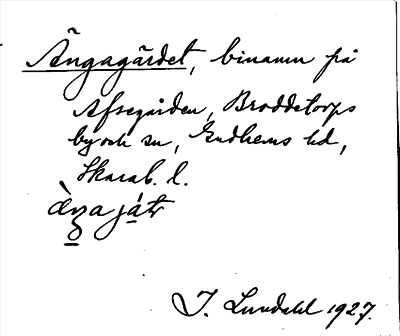 Ängagärdet, binamn på
Afsegården, Broddetorps
by och sn, Gudhems hd,
Skarab. l.
J. Lundahl 1927.